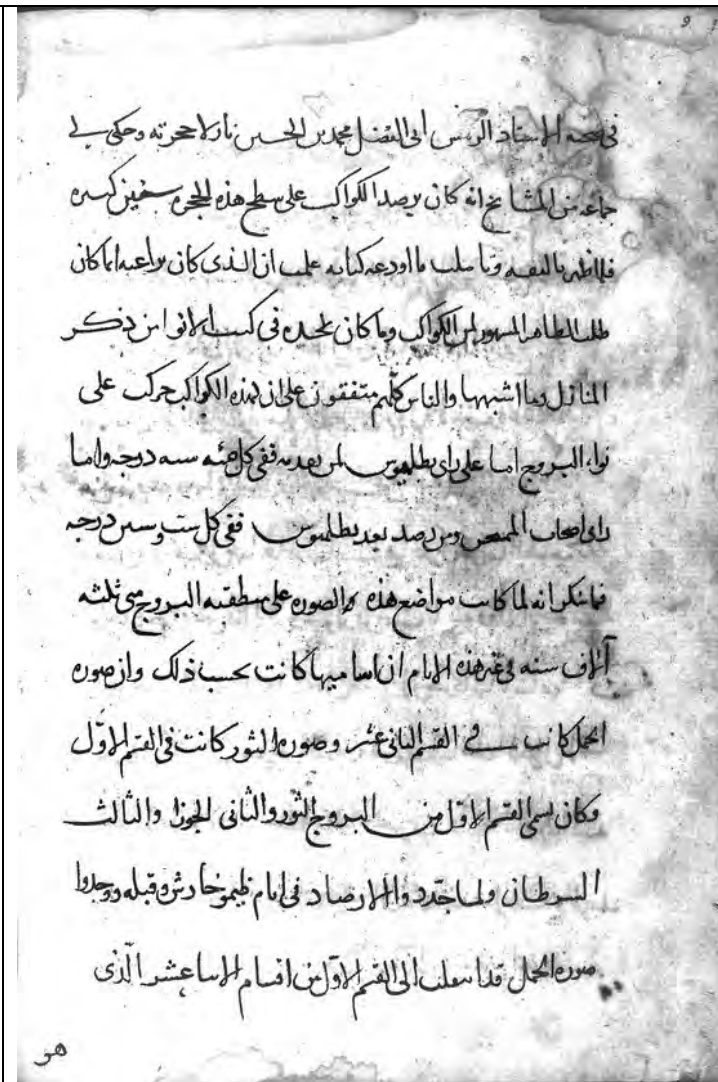 في صحبه الاستاد الرئيس ابي الفضل محمد بن الحسين نازلا حجرته وحكى لي
جماعه من المشايخ انه كان يرصد الكواكب على سطح هذه الحجره سنين كثيره
فلما ظهر تاليفه وتاملت ما اودعه كتابه علمت ان الذى كان يراعيه انما كان
طلب الظاهر المشهور من الكواكب وما كان يجده في كتب الانوا من ذكر
المنازل وما اشبهها والناس كلهم متفقون على ان لهذه الكواكب حركه على
توالى البروج اما على راى بطلميوس ففى كل مئه سنه درجه واما
راى اصحاب الممتحن ومن رصد بعد بطلميوس ففى كل ست وستين درجه
فما ننكر انه لما كانت مواضع هذه الصوره على منطقه البروج مىى ثلثه
آلاف سنه فى غير هذه الايام ان اساميها كانت بحسب ذلك وان صوره
الحمل كانت في القسم الثانى عشر وصوره الثور كانت فى القسم الاول
وكان يسمى القسم الاول من البروج الثور والثانى الجوزا والثالث
السرطان ولما جددوا الارصاد فى ايام طيموخارس وقبله ووجدوا
صوره الحمل قد انتقلت الى القسم الاول من اقسام الاثناعشر الذى
هو